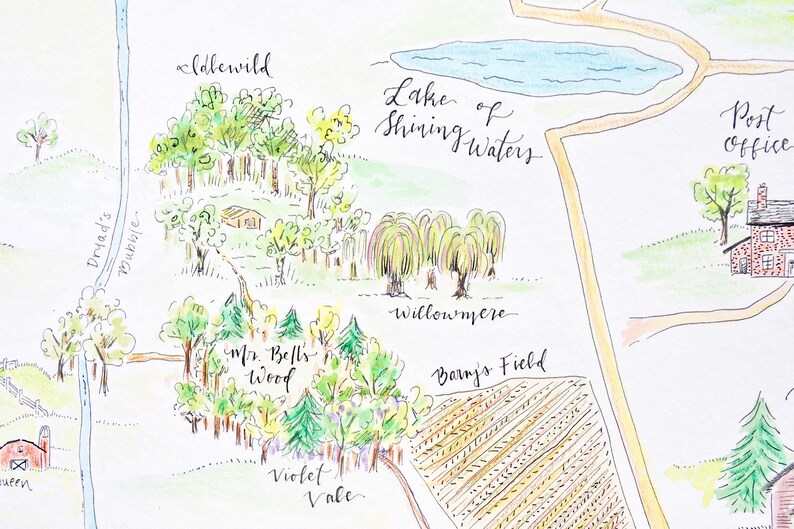 Idlewild
Lake of
Shining
Waters
Post
Office
Dryad's
Bubble
Willowmere
Mr. Bell's
Wood
Barry's Field
Violet
Vale
ueen